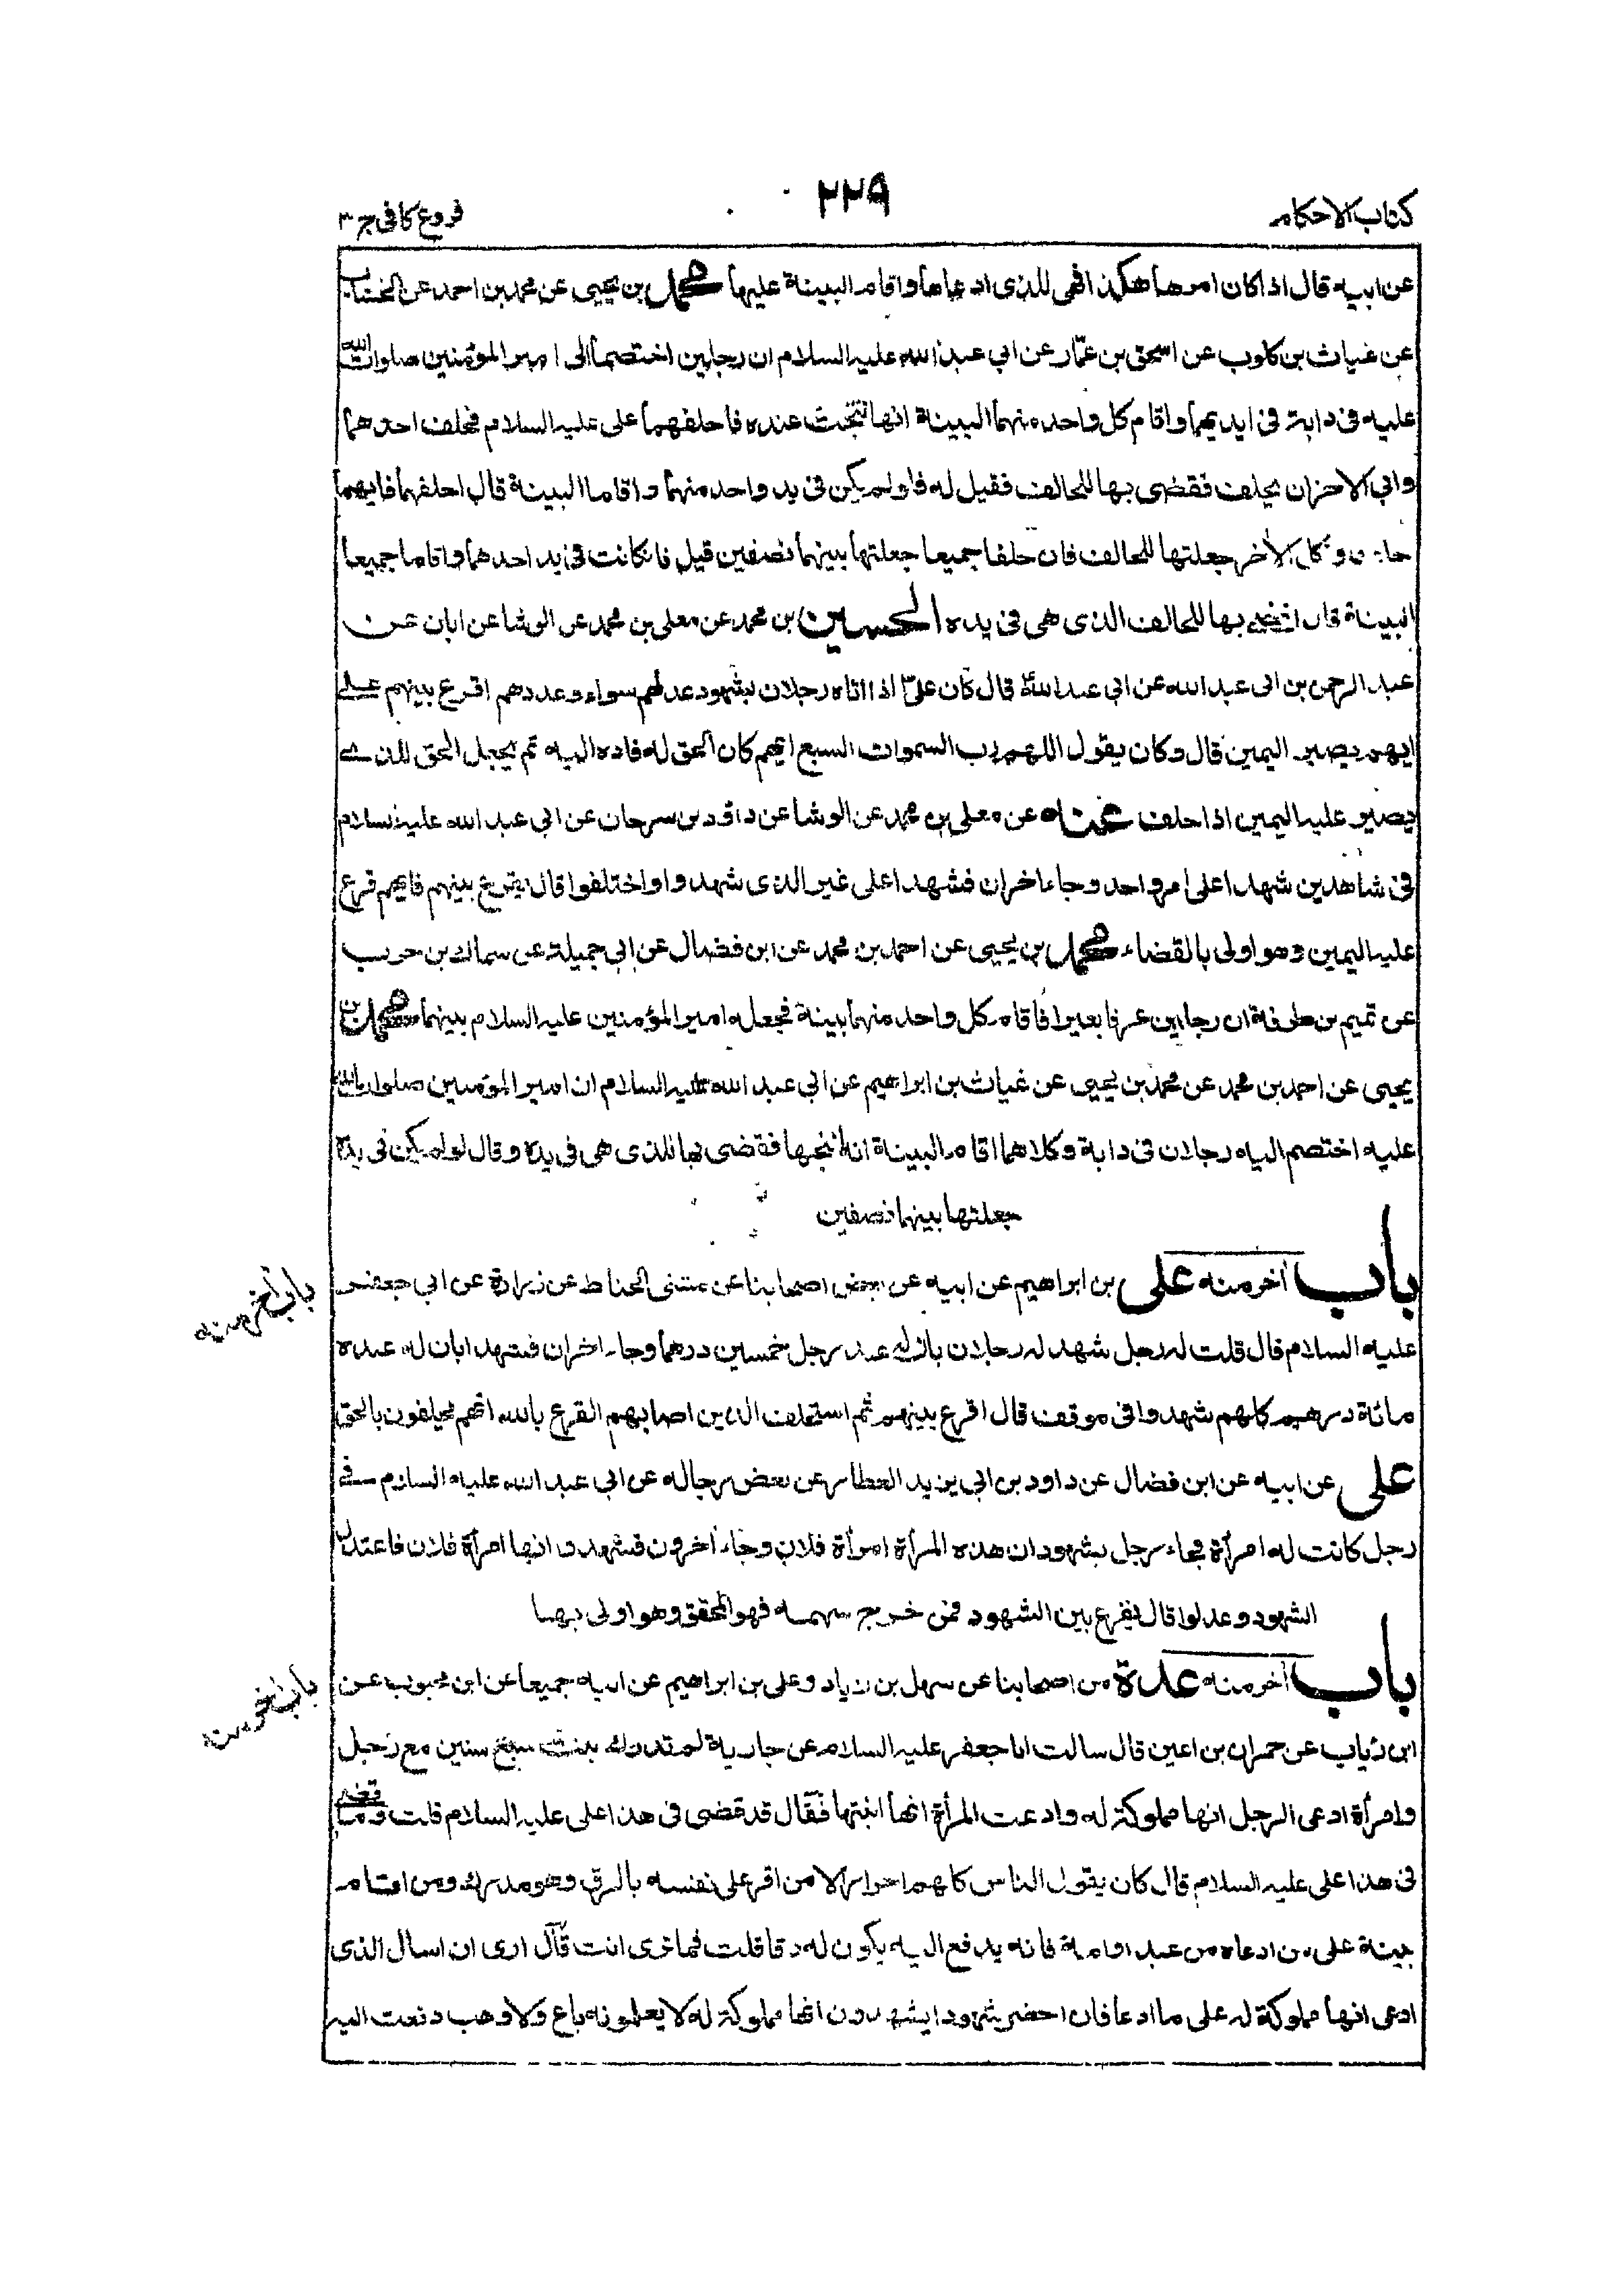 كتاب الاحكام
٢٢٩
فروع كافى ج ٣
عن ابيه قال اذا كان امرها هكذا فهى للذى ادعاها واقام البينة عليها محمد بن يحيى عن محمد بن احمد عن الخشاب
عن غياث بن كلوب عن اسحق بن عمّار عن ابى عبد الله عليه السلام ان رجلين اختصما الى امير المؤمنين صلوات الله
عليه فى دابة فى ايديهما واقام كل واحد منهما البينة انها نتجت عنده فاحلفهما على عليه السلام فحلف احدهما
وابى الاخر ان يحلف فقضى بها للحالف فقيل له فلو لم يكن فى يد واحد منهما واقاما البينة قال احلفهما فايهما
حلف ونكل الأخر جعلتها للحالف فان حلفا جميعا جعلتها بينهما نصفين قيل فان كانت فى يد احدهما واقاما جميعا
البينة قال اقضى بها للحالف الذى هى فى يده الحسين بن محمد عن معلى بن محمد عن الوشا عن ابان عن
عبد الرحمن بن ابى عبد الله عن ابى عبد الله قال كان على اذا اتاه رجلان بشهود عدلهم سواء وعددهم اقرع بينهم على
ايهم يصير اليمين قال وكان يقول اللهم رب السموات السبع ايهم كان الحق له فاده اليه ثم يجعل الحق للذى
يصير عليه اليمين اذا حلف عنه عن معلى بن محمد عن الوشا عن داود بن سرحان عن ابى عبد الله عليه السلام
فى شاهدين شهدا على امر واحد وجاء اخران فشهدا على غير الذى شهدوا واختلفوا قال يقرع بينهم فايهم قرع
عليه اليمين وهو اولى بالقضاء محمد بن يحيى عن احمد بن محمد عن ابن فضال عن ابى جميلة عن سماك بن حرب
عن تميم بن طرفة ان رجلين عرفا بعيرا فاقام كل واحد منهما بينة فجعله امير المؤمنين عليه السلام بينهما محمد بن
يحيى عن احمد بن محمد عن محمد بن يحيى عن غياث بن ابراهيم عن ابى عبد الله عليه السلام ان امير المؤمنين صلوات الله
عليه اختصم اليه رجلان فى دابة وكلاهما اقام البينة انه انتجها فقضى بها للذى هى فى يده وقال لو لم يكن فى يده
جعلتها بينهما نصفين
باب أخر منه على بن ابراهيم عن ابيه عن بعض اصحابنا عن مثنى الحناط عن زرارة عن ابى جعفر
باب أخر منه
عليه السلام قال قلت له رجل شهد له رجلان بان له عند رجل خمسين درهما وجاء اخران فشهدا بان له عنده
مائة درهم كلهم شهدوا فى موقف قال اقرع بينهم ثم استحلف الذين اصابهم القرع بالله انهم يحلفون بالحق
على عن ابيه عن ابن فضال عن داود بن ابى يزيد العطار عن بعض رجاله عن ابى عبد الله عليه السلام فى
رجل كانت له امرأة فجاء رجل بشهود ان هذه المرأة امرأة فلان وجاء أخرون فشهدوا انها امرأة فلان فاعتدل
الشهود وعدلوا قال يقرع بين الشهود فمن خرج سهمه فهو المحق وهو اولى بها
باب أخر منه عدة من اصحابنا عن سهل بن زياد وعلى بن ابراهيم عن ابيه جميعا عن ابن محبوب عن
باب أخر منه
ابن رئاب عن حمران بن اعين قال سالت ابا جعفر عليه السلام عن جارية لم تدرك بنت سبع سنين مع رجل
وامرأة ادعى الرجل انها مملوكة له وادعت المرأة انها ابنتها فقال قد قضى فى هذا على عليه السلام قلت وما قضى
فى هذا على عليه السلام قال كان يقول الناس كلهم احرار الا من اقر على نفسه بالرق وهو مدرك ومن اقام
بينة على من ادعاه من عبد او امة فانه يدفع اليه يكون له رقا قلت فما ترى انت قال ارى ان اسال الذى
ادعى انها مملوكة له على ما ادعا فان احضر شهودا يشهدون انها مملوكة له لا يعلمونه باع ولا وهب دفعت اليه